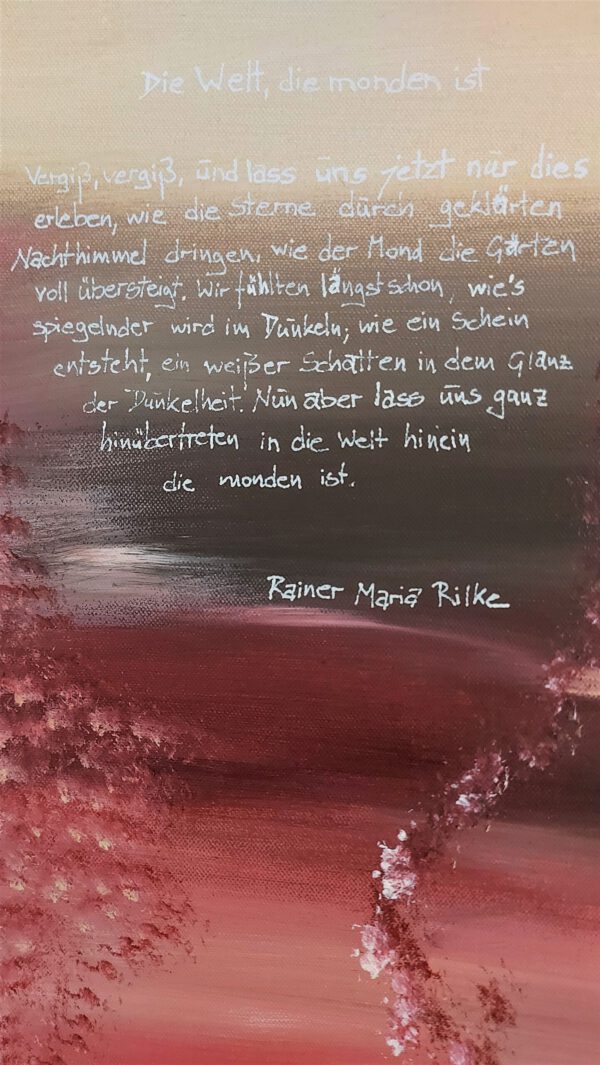 Die Welt, die monden ist
Vergiß, vergiß, und lass uns jetzt nur dies
erleben, wie die Sterne durch geklärten
Nachthimmel dringen, wie der Mond die Gärten
voll übersteigt. Wir fühlten längst schon, wie's
spiegelnder wird im Dunkeln; wie ein Schein
entsteht, ein weißer Schatten in dem Glanz
der Dunkelheit. Nun aber lass uns ganz
hinübertreten in die Welt hinein
die monden ist.
Rainer Maria Rilke